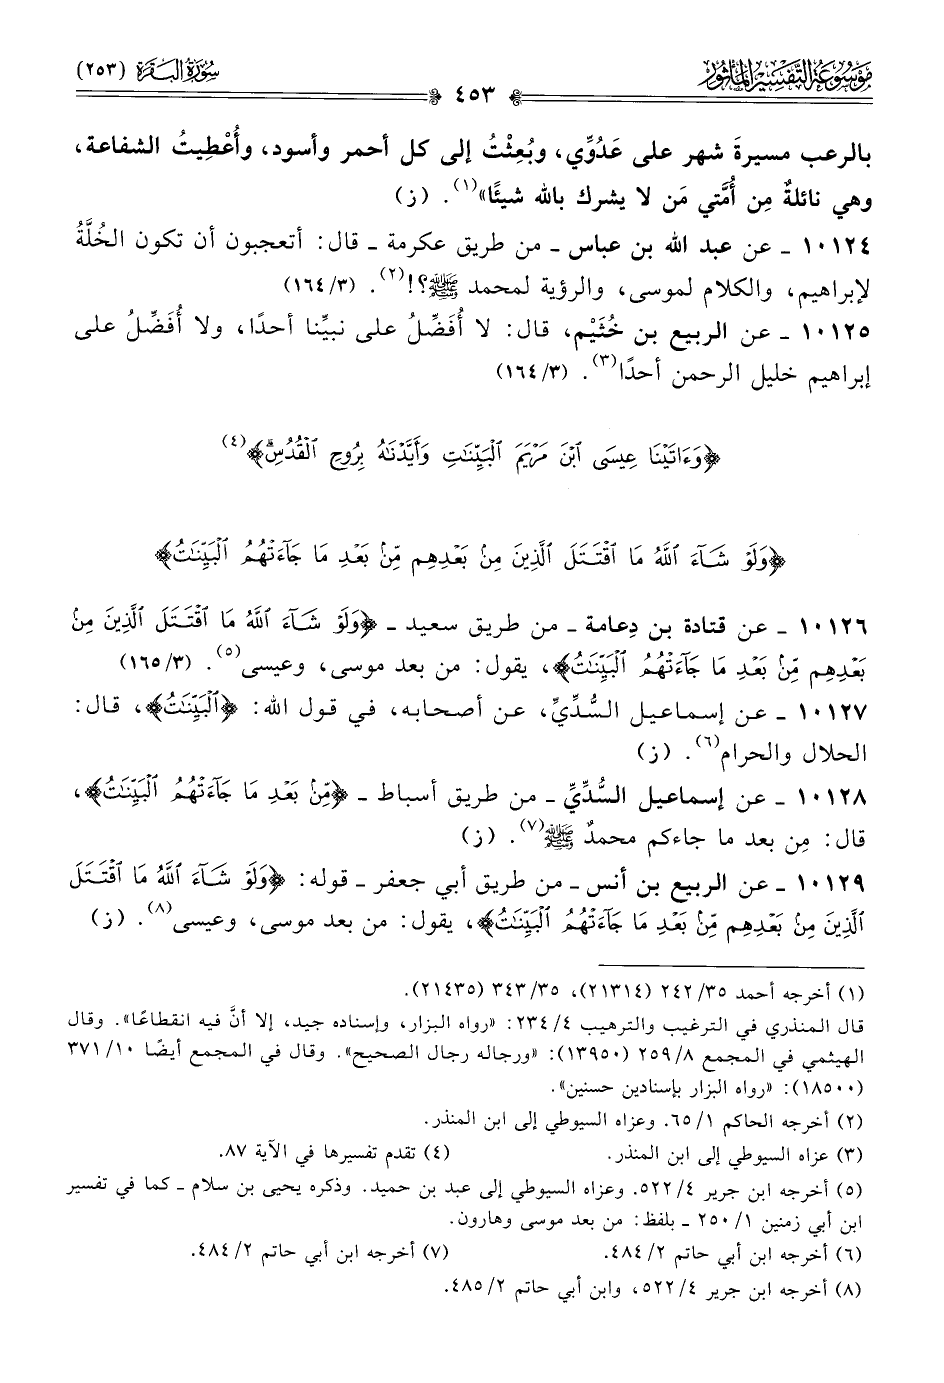 موسوعة التفسير المأثور
٤٥٣
سورة البقرة (٢٥٣)
بالرعب مسيرةَ شهر على عَدُوِّي، وبُعِثْتُ إلى كل أحمر وأسود، وأُعْطِيتُ الشفاعة،
وهي نائلةٌ مِن أُمَّتي مَن لا يشرك بالله شيئًا»(١). (ز)
١٠١٢٤ ـ عن عبد الله بن عباس ـ من طريق عكرمة ـ قال: أتعجبون أن تكون الخُلَّةُ
لإبراهيم، والكلام لموسى، والرؤية لمحمد ﷺ؟!(٢). (٣/ ١٦٤)
١٠١٢٥ ـ عن الربيع بن خُثَيْم، قال: لا أُفَضِّلُ على نبيِّنا أحدًا، ولا أُفَضِّلُ على
إبراهيم خليل الرحمن أحدًا(٣). (٣/ ١٦٤)
﴿وَءَاتَيْنَا عِيسَى ٱبْنَ مَرْيَمَ ٱلْبَيِّنَٰتِ وَأَيَّدْنَٰهُ بِرُوحِ ٱلْقُدُسِۗ﴾(٤)
﴿وَلَوْ شَآءَ ٱللَّهُ مَا ٱقْتَتَلَ ٱلَّذِينَ مِنۢ بَعْدِهِم مِّنۢ بَعْدِ مَا جَآءَتْهُمُ ٱلْبَيِّنَٰتُ﴾
١٠١٢٦ ـ عن قتادة بن دِعامة ـ من طريق سعيد ـ ﴿وَلَوْ شَآءَ ٱللَّهُ مَا ٱقْتَتَلَ ٱلَّذِينَ مِنۢ
بَعْدِهِم مِّنۢ بَعْدِ مَا جَآءَتْهُمُ ٱلْبَيِّنَٰتُ﴾، يقول: من بعد موسى، وعيسى(٥). (٣/ ١٦٥)
١٠١٢٧ ـ عن إسماعيل السُّدِّيِّ، عن أصحابه، في قول الله: ﴿ٱلْبَيِّنَٰتُ﴾، قال:
الحلال والحرام(٦). (ز)
١٠١٢٨ ـ عن إسماعيل السُّدِّيِّ ـ من طريق أسباط ـ ﴿مِّنۢ بَعْدِ مَا جَآءَتْهُمُ ٱلْبَيِّنَٰتُ﴾،
قال: مِن بعد ما جاءكم محمدٌ ﷺ(٧). (ز)
١٠١٢٩ ـ عن الربيع بن أنس ـ من طريق أبي جعفر ـ قوله: ﴿وَلَوْ شَآءَ ٱللَّهُ مَا ٱقْتَتَلَ
ٱلَّذِينَ مِنۢ بَعْدِهِم مِّنۢ بَعْدِ مَا جَآءَتْهُمُ ٱلْبَيِّنَٰتُ﴾، يقول: من بعد موسى، وعيسى(٨). (ز)
(١) أخرجه أحمد ٣٥/ ٢٤٢ (٢١٣١٤)، ٣٥/ ٣٤٣ (٢١٤٣٥).
قال المنذري في الترغيب والترهيب ٤/ ٢٣٤: «رواه البزار، وإسناده جيد، إلا أنَّ فيه انقطاعًا». وقال
الهيثمي في المجمع ٨/ ٢٥٩ (١٣٩٥٠): «ورجاله رجال الصحيح». وقال في المجمع أيضًا ١٠/ ٣٧١
(١٨٥٠٠): «رواه البزار بإسنادين حسنين».
(٢) أخرجه الحاكم ١/ ٦٥. وعزاه السيوطي إلى ابن المنذر.
(٣) عزاه السيوطي إلى ابن المنذر. (٤) تقدم تفسيرها في الآية ٨٧.
(٥) أخرجه ابن جرير ٤/ ٥٢٢. وعزاه السيوطي إلى عبد بن حميد. وذكره يحيى بن سلام ـ كما في تفسير
ابن أبي زمنين ١/ ٢٥٠ ـ بلفظ: من بعد موسى وهارون.
(٦) أخرجه ابن أبي حاتم ٢/ ٤٨٤. (٧) أخرجه ابن أبي حاتم ٢/ ٤٨٤.
(٨) أخرجه ابن جرير ٤/ ٥٢٢، وابن أبي حاتم ٢/ ٤٨٥.